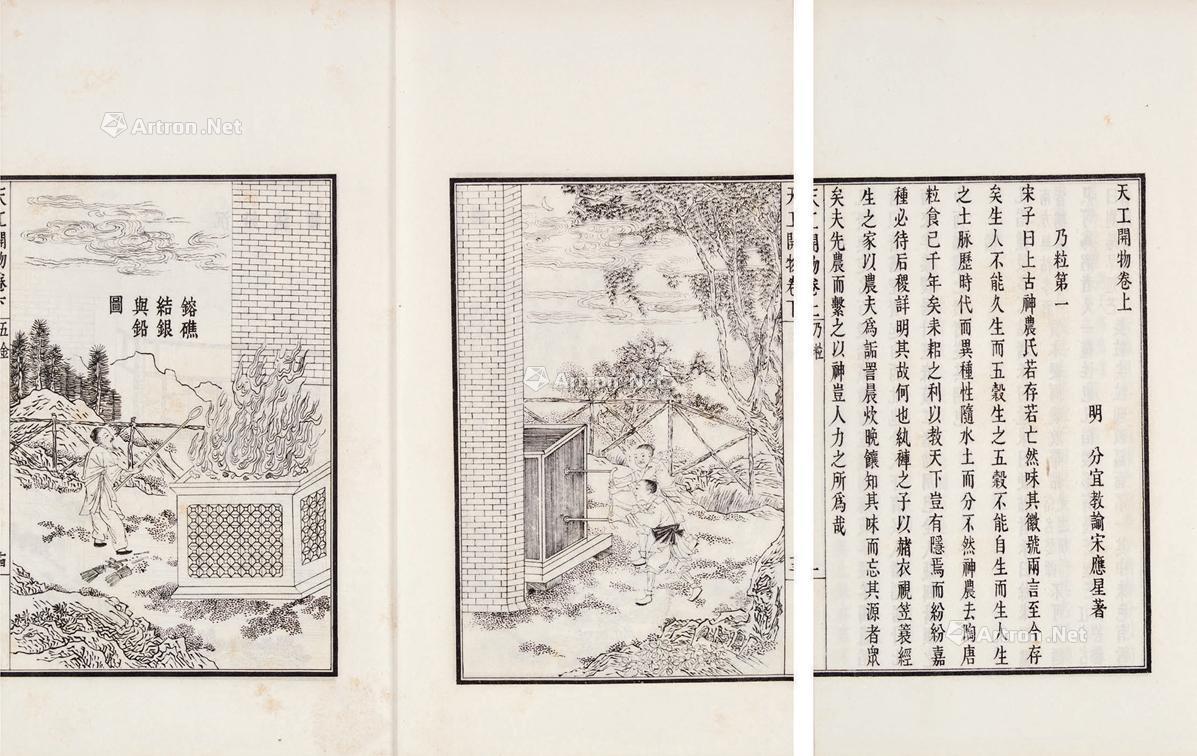 天工開物卷上
明　分宜教諭宋應星著
乃粒第一
宋子曰上古神農氏若存若亡然味其徽號兩言至今存
矣生人不能久生而五穀生之五穀不能自生而生人生
之土脉歷時代而異種性隨水土而分不然神農去陶唐
粒食已千年矣耒耜之利以教天下豈有隱焉而紛紛嘉
種必待后稷詳明其故何也紈褲之子以赭衣視笠蓑經
生之家以農夫為詬詈晨炊晚饟知其味而忘其源者眾
矣夫先農而繫之以神豈人力之所為哉
天工開物卷上乃粒
一
天工開物卷下
鎔礁
結銀
與鉛
圖
天工開物卷下
五金
十四
Artron.Net
Artron.Net
Artron.Net